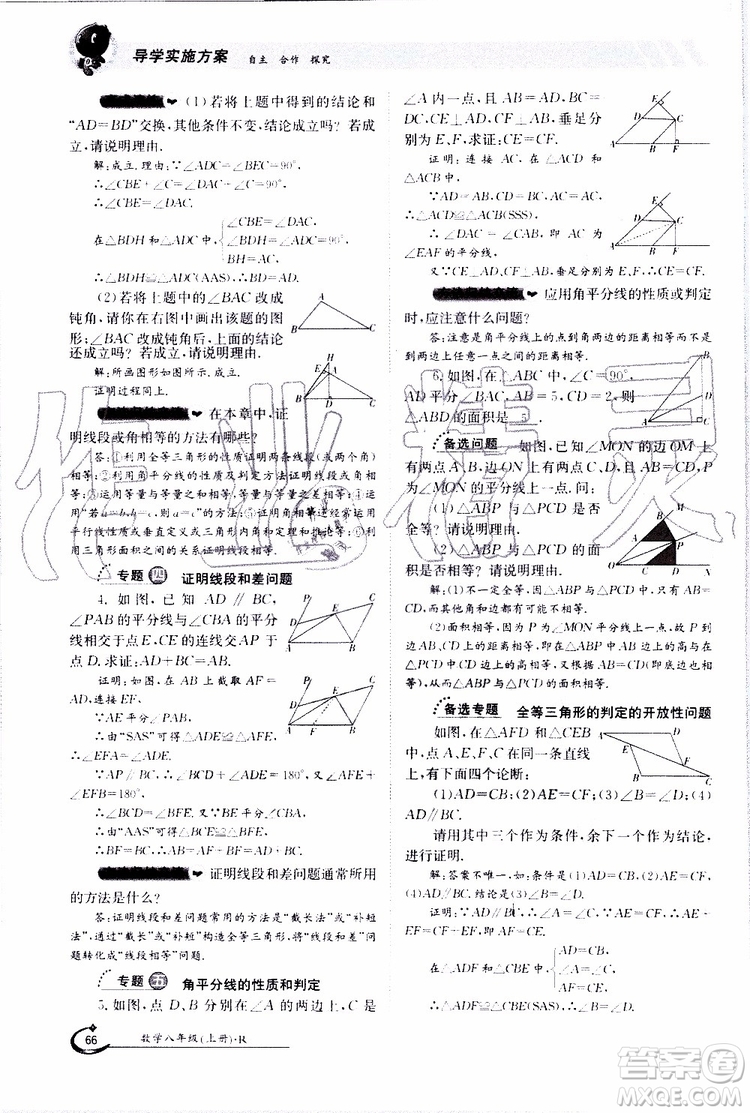 导学实施方案 自主 合作 探究
(1)若将上题中得到的结论和
“AD=BD”交换,其他条件不变,结论成立吗?若成
立,请说明理由.
解:成立.理由:∵∠ADC=∠BEC=90°,
∴∠CBE+∠C=∠DAC+∠C=90°,
∴∠CBE=∠DAC.
在△BDH和△ADC中,
∠CBE=∠DAC,
∠BDH=∠ADC,
BH=AC,
∴△BDH≌△ADC(AAS),∴BD=AD.
(2)若将上题中的∠BAC改成
钝角,请你在右图中画出该题的图
形;∠BAC改成钝角后,上面的结论
还成立吗?若成立,请说明理由.
解:所画图形如图所示,成立.
证明过程同上.
A
B
C
H
E
A
B
D
C
在本章中,证
明线段或角相等的方法有哪些?
答:①利用全等三角形的性质证明两条线段(角)相等;
②利用角平分线的性质及判定方法证明线段(角)相
等;③运用等量与等量的和相等,等量与等量的差相等;④运
用“若a=b,b=c,则a=c”的方法;⑤证明角相等还经常运用
平行线性质或垂直定义或三角形内角和定理和推论等;⑥利
用三角形面积之间的关系证明线段相等.
专题四 证明线段和差问题
4. 如图,已知AD∥BC,
∠PAB的平分线与∠CBA的平分
线相交于点E,CE的连线交AP于
点D.求证:AD+BC=AB.
证明:如图,在AB上截取AF=
AD,连接EF.
∵AE平分∠PAB,
∴由“SAS”可得△DAE≌△FAE,
∴∠EFA=∠ADE.
∵AP∥BC,∴∠ADE+∠C=180°,∵∠AFE+
∠EFB=180°,
∴∠C=∠BFE.又∵BE平分∠CBA,
∴由“AAS”可得△CBE≌△FBE.
∴BC=BF,∴AD+BC=AF+BF=AB.
证明线段和差问题通常所用
的方法是什么?
答:证明线段和差问题常用的方法是“截长法”或“补短
法”,通过“截长”或“补短”构造全等三角形,将“线段和差”问
题转化成“线段相等”问题.
专题五 角平分线的性质和判定
5. 如图,点D、B分别在∠A的两边上,C是
66
数学八年级(上册)·R
∠A内一点,且AB=AD,BC=
DC,CE⊥AD,CF⊥AB,垂足分
别为E、F,求证:CE=CF.
证明:连接AC,在△ACD和
△ACB中,
∵AD=AB,CD=BC,AC=AC,
∴△ACD≌△ACB(SSS),
∴∠DAC=∠BAC,∴AC为
∠EAF的平分线,
又∵CE⊥AD,CF⊥AB,∴CE=CF.
应用角平分线的性质或判定
时,应注意什么问题?
答:注意是角平分线上的点到角两边的距离相等而不是
到线段两端点的距离相等.
6. 如图,在△ABC中,∠C=90°,
AD平分∠BAC,AB=5,CD=2,则
△ABD的面积是 5 .
备选问题 如图,已知∠MON的边OM上
有两点A、B,边ON上有两点C、D,且AB=CD,P
为∠MON的平分线上一点.问:
(1)△ABP与△PCD是否
全等?请说明理由.
(2)△ABP与△PCD的面
积是否相等?请说明理由.
解:(1)不一定全等,因为△ABP与△PCD中,只有一
角一边相等,其他角和边都有可能不相等,所以两三角形不
一定全等.
(2)面积相等,因为P为∠MON平分线上一点,所以P
到边AB、CD上的距离相等,即△ABP中AB边上的高与
△PCD中CD边上的高相等.又因为AB=CD(即底边也相
等),从而△ABP与△PCD的面积相等.
备选专题 全等三角形的判定的开放性问题
如图,在△AFD和△CEB
中,点A、E、F、C在同一条直线
上,有下面四个论断:
(1)AD=CB;(2)AE=CF;(3)∠B=∠D;(4)
AD∥BC.
请用其中三个作为条件,余下一个作为结论,
进行证明.
解:答案不唯一.如:已知AD=CB,AE=CF,AD∥
BC.结论是∠B=∠D.
证明:∵AD∥BC,∴∠A=∠C.
∵AE=CF,∴AF=CE.
在△ADF和△CBE中,
AD=CB,
∠A=∠C,
AF=CE,
∴△ADF≌△CBE(SAS),∴∠B=∠D.
答案圈